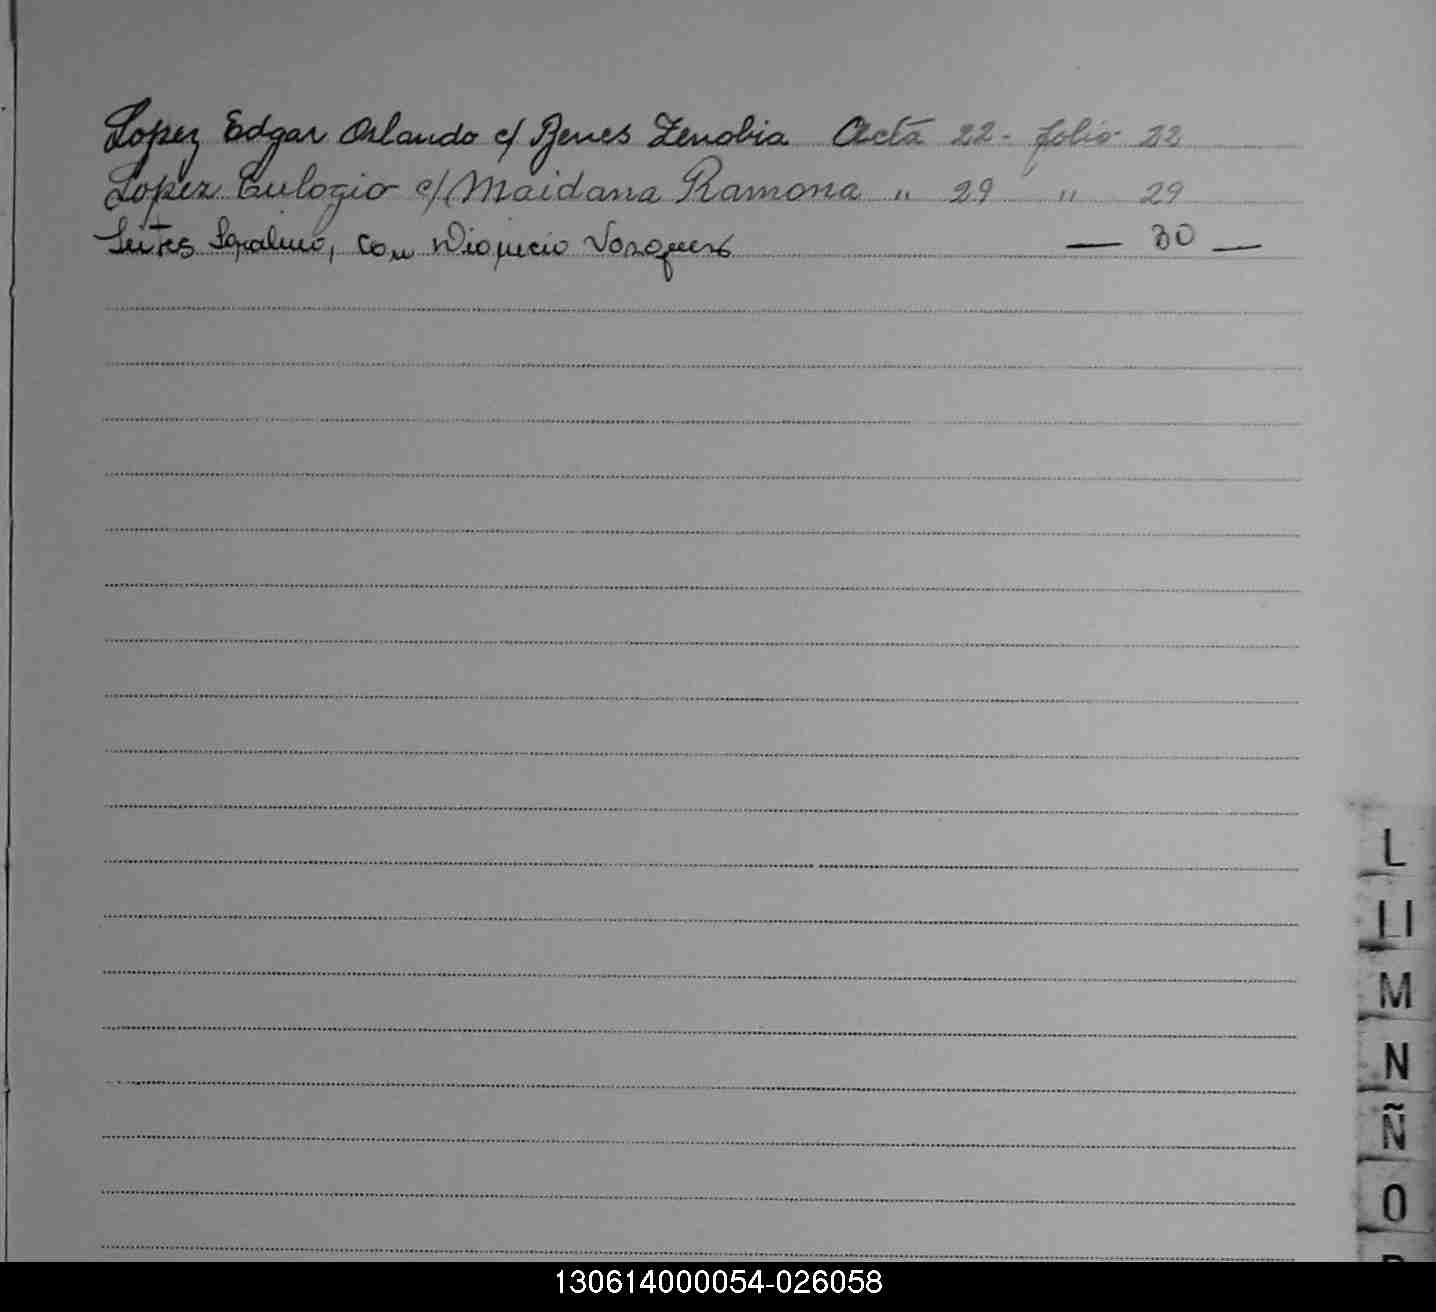 Lopez Edgar Orlando c/ Benes Zenobia Acta 22 - folio 22
Lopez Eulogio c/ Maidana Ramona " 29 " 29
con — 30 —
L
Ll
M
N
Ñ
O
130614000054-026058